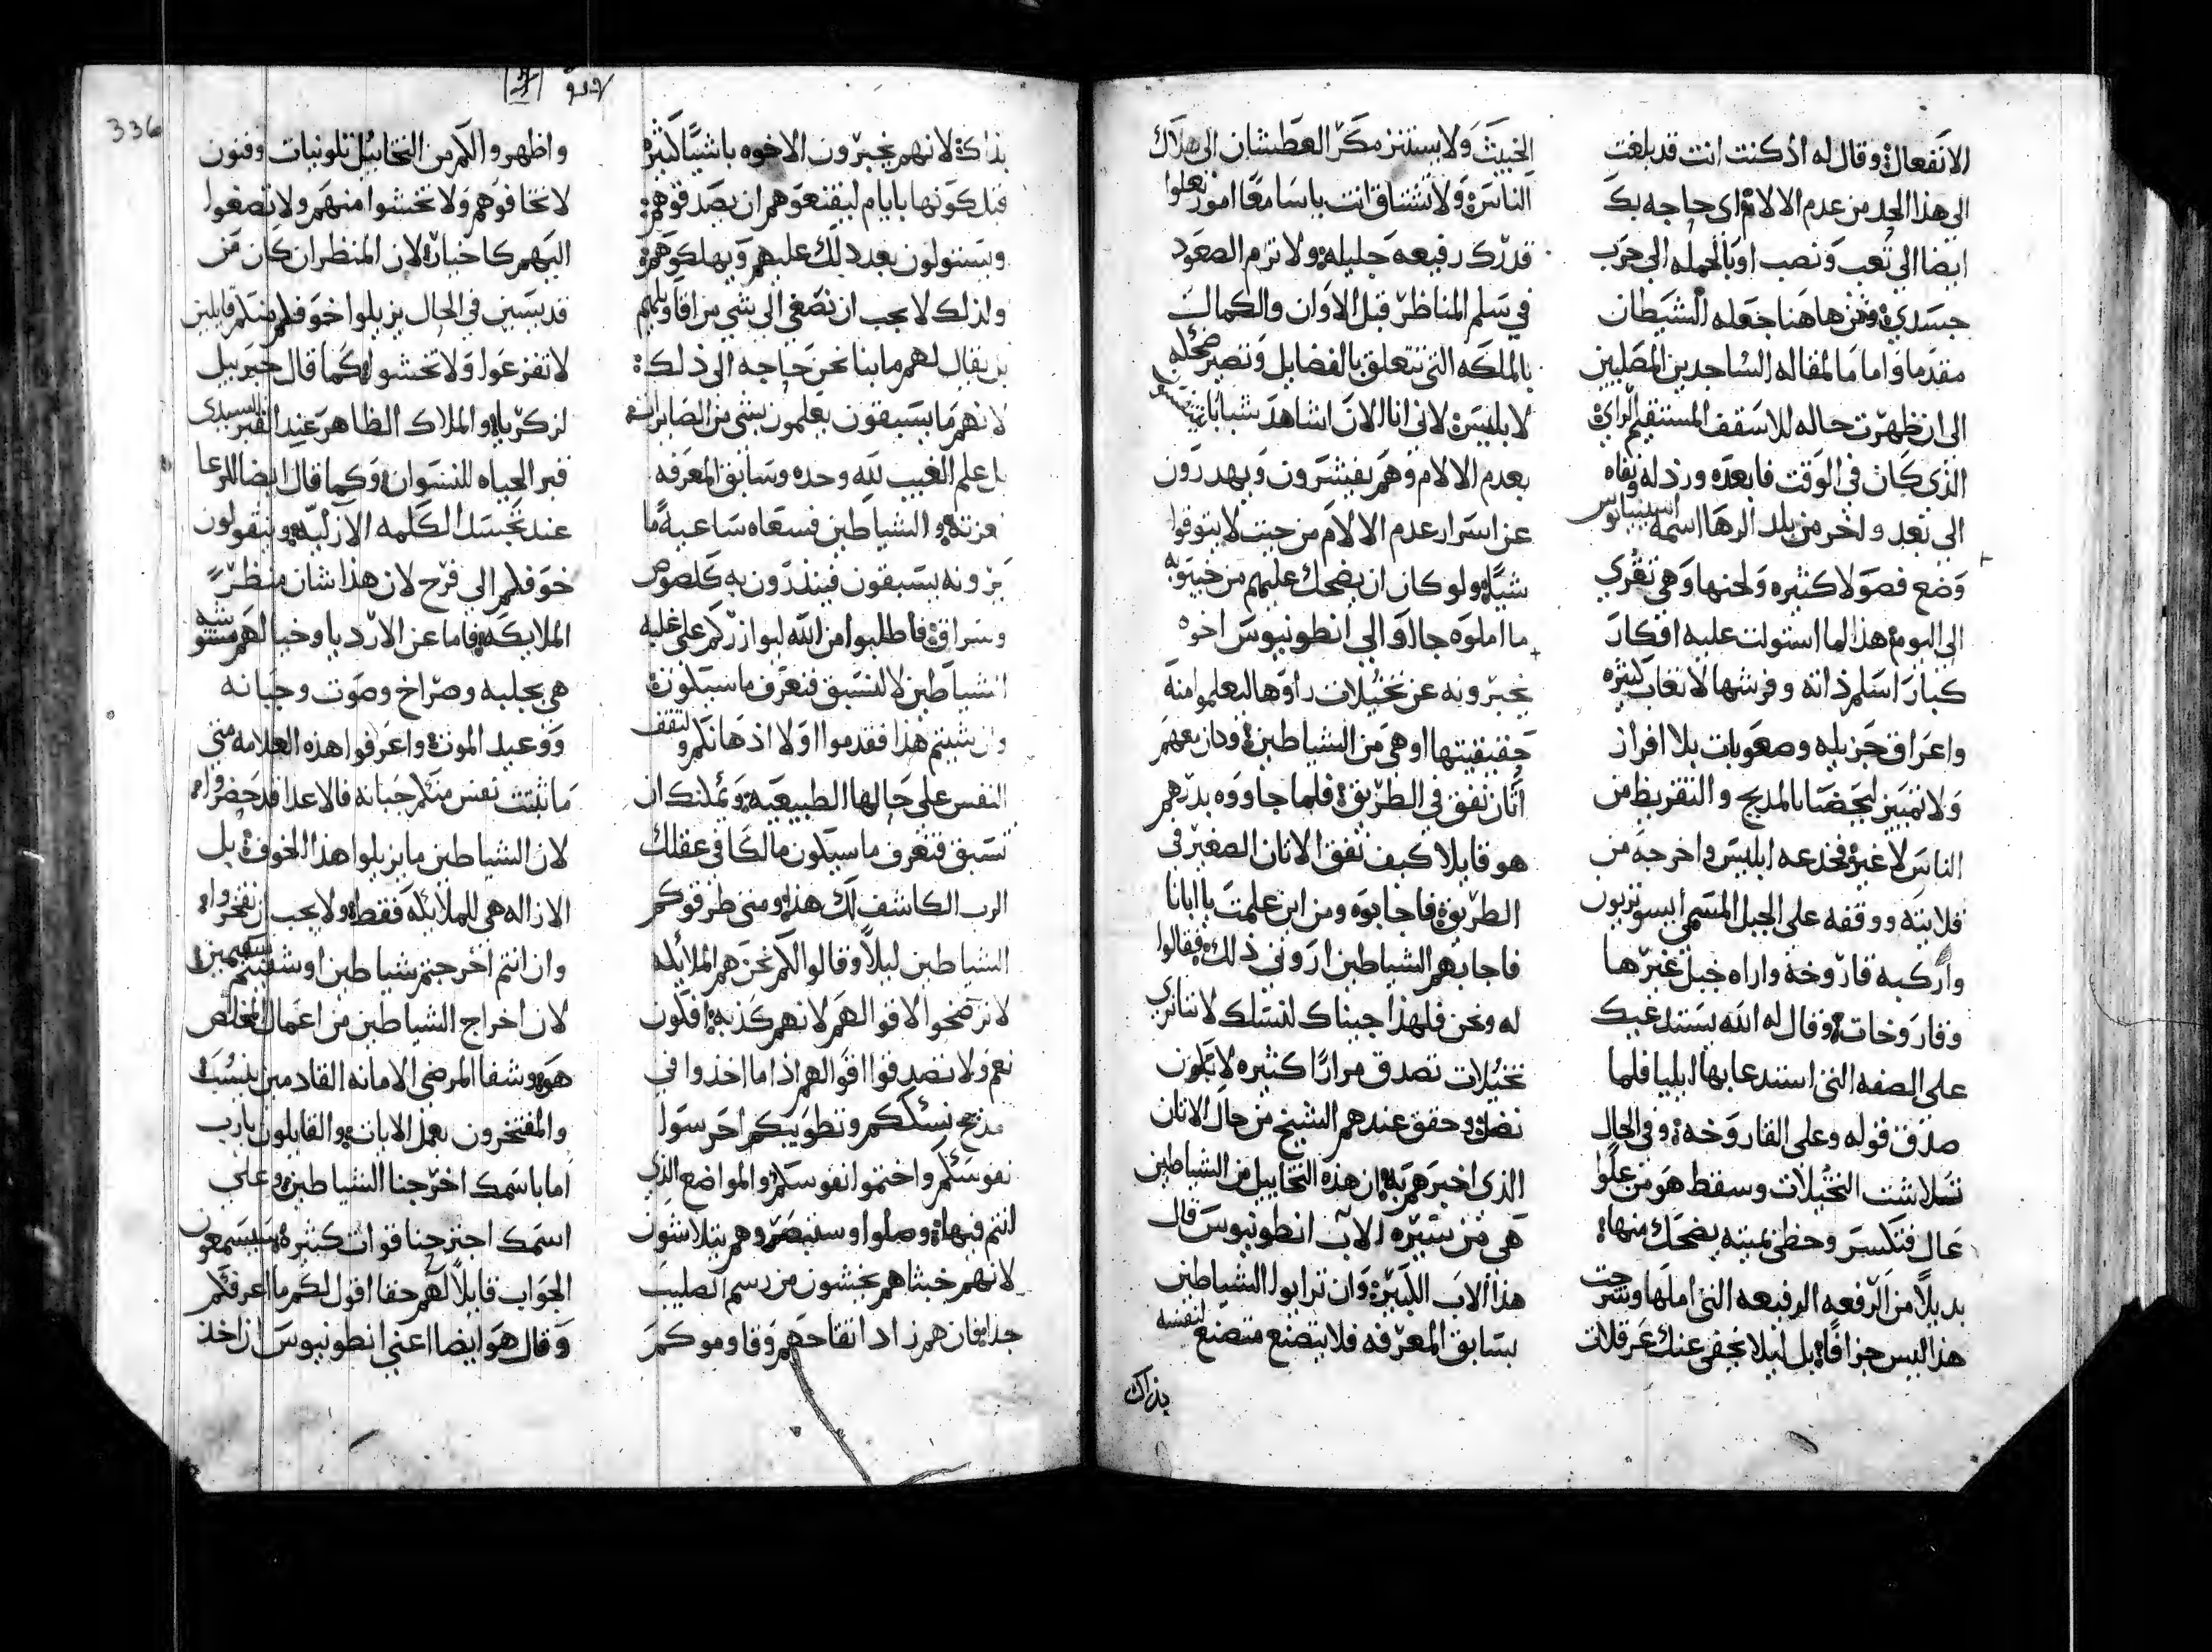 الانفعال؛ وقال له اذ كنت انت قد بلغت
الى هذا الحد من عدم الالام؛ اى حاجه بك
ايضا الى تعب ونصب او بالجمله الى حرب
جسدي؛ ونحن هاهنا جعله الشيطان
مقدما؛ واما المقاله الساجدين المصليين
الى ان ظهرت حاله للاسقف المستقيم الراي؛
الذى كان فى الوقت فابعده ورذله ونفاه
الى بعد واخر من بلد الرها اسمه
وضع فصولا كثيره ولحنها وهى تقرى
الى اليوم؛ هذا لما استولت عليه افكار
كبار اسلم ذاته وفرشها لاتعاب كثيره
واعراق جزيله وصعوبات بلا افراز
ولا تمييز لحضنا بالمديح والتقريظ من
الناس لا غير؛ فخدعه ابليس واخرجه من
قلايته ووقفه على الجبل المسمى
واركبه قاروخة واراه خيل غيرها
وقاروخات؛ وقال له الله يستدعيك
على الصفه التى استدعا بها ايليا فلما
صدق قوله وعلى القاروخه؛ وفى الحال
تلاشت التخيلات وسقط هو من علوا
عال فتكسر وحظى بميته يضحك منها؛
بديلا من الرفعه الرفيعه التى املها وشرحت
هذا ليس جزافا؛ بل ليلا تخفى عنك عرقلات
الخبيث ولا يستتر مكر العطشان الى هلاك
الناس؛ ولا تشتاق انت يا سامعا امور تعلوا
قدرك رفيعه جليله؛ ولا ترم الصعود
في سلم المناظر قبل الاوان والكمالت
بالملكه التى تتعلق بالفضايل وتصير ضحكه
لابليس؛ لانى انا الان اشاهد شبابا
بعدم الالام وهم يفشرون ويهدرون
عن اسرار عدم الالام من حيث لا يتوقوا
شيا؛ ولو كان ان يضحك عليهم من حيث به
ما املوه جاوا الى انطونيوس اخوه
يخبرونه عن تخيلات راوها ليعلموا منه
حقيقيتها او هى من الشياطين؛ وكان معهم
اتان نفق فى الطريق؛ فلما جاووه بدرهم
هو قايلا كيف نفق الاتان الصغير فى
الطريق؛ فاجابوه ومن اين علمت يا ابانا
فاجابهم الشياطين ارونى ذلك؛ فقالوا
له ونحن فلهذا جيناك لنسلك لاننا نرى
تخيلات تصدق مرارا كثيره لا يكون
نضل؛ وحقق عندهم الشيخ من حال الاتان
الذى اخبرهم به؛ ان هذه التخاييل من الشياطين
هى من سيره الاب انطونيوس قال
هذا الاب الكبير؛ وان ترايوا الشياطين
بسابق المعرفه فلا يتصنع متصنع لنفسه
بذاك
بذاك؛ لانهم يخبرون الاخوه باشيا كثيره
قبل كونها بايام ليقنعوهم ان يصدقوهم؛
ويستولون بعد ذلك عليهم ويهلكوهم؛
ولذلك لا يجب ان نصغى الى شي من اقاويلهم
بل يقال لهم ما بنا نحن حاجه الى ذلك؛
لانهم ما يسبقون يعلمون بشى من الصايرات
بل علم الغيب لله وحده وسابق المعرفه
عزته؛ والشياطين فسعاه ساعيه ما
يرونه يسبقون فينذرون به كلصوص
وسراق؛ فاطلبوا من الله ليوازركم على غلبه
الشياطين لا لنسبق فنعرف ما سيكون؛
وان شيتم هذا فقدموا اولا اذهانكم ولتقف
النفس على حالها الطبيعيه؛ ويمكنك ان
تسبق فتعرف ما سيكون مالكا فى عقلك
الرب الكاشف لك هذا؛ ومتى طرقوكم
الشياطين ليلا وقالوا لكم نحن هم الملايكه
لا ترضخوا لاقوالهم لانهم كذبه؛ افكون
نعم ولا تصدقوا اقوالهم اذا ما اخذوا في
مديح نسككم وتطويبكم احرسوا
نفوسكم واختموا نفوسكم؛ والمواضع الذي
انتم فيها؛ وصلوا وستبصروهم يتلاشون
لانهم خبثا هم يخشون من رسم الصليب
جدا؛ فان هم زادا تقاحهم وقاوموكم
336
واظهروا لكم من التخاييل تلونيات وفنون
لا تخافوهم ولا تخشوا منهم ولا تصغوا
اليهم كاخيار؛ لان المنظر ان كان من
قديسين في الحال يزيلوا خوفكم منكم قايلين
لا تفزعوا ولا تخشوا؛ كما قال جبرييل
لزكريا؛ والملاك الظاهر عند القبر السيدى
قبر الحياه للنسوان؛ وكما قال ايضا للرعا
عند تجسد الكلمه الازليه؛ وينقولون
خوفكم الى فرح لان هذا شان منظر
الملايكه؛ فاما عن الارديا وخيالهم
هى بجلبه وصراخ وصوت وجبانه
ووعيد الموت؛ واعرفوا هذه العلامه متى
ما ثبتت نفس منكم جبانه فالاعدا قد حضروا؛
لان الشياطين ما يزيلوا هذا الخوف؛ بل
الازاله هى للملايكه فقط؛ ولا يجب ان تفخروا
وان انتم اخرجتم شياطين او شفيتم سقيمين
لان اخراج الشياطين من اعمال المخلص
هو؛ وشفا المرضى الامانه القادمين
والمفتخرون بعمل الايات؛ والقايلون يارب
اما باسمك اخرجنا الشياطين؛ وعلى
اسمك اجترحنا قوات كثيره؛ سيسمعون
الجواب قايلا لهم حقا اقول لكم ما اعرفكم
وقال هو ايضا اعنى انطونيوس ان اخذ